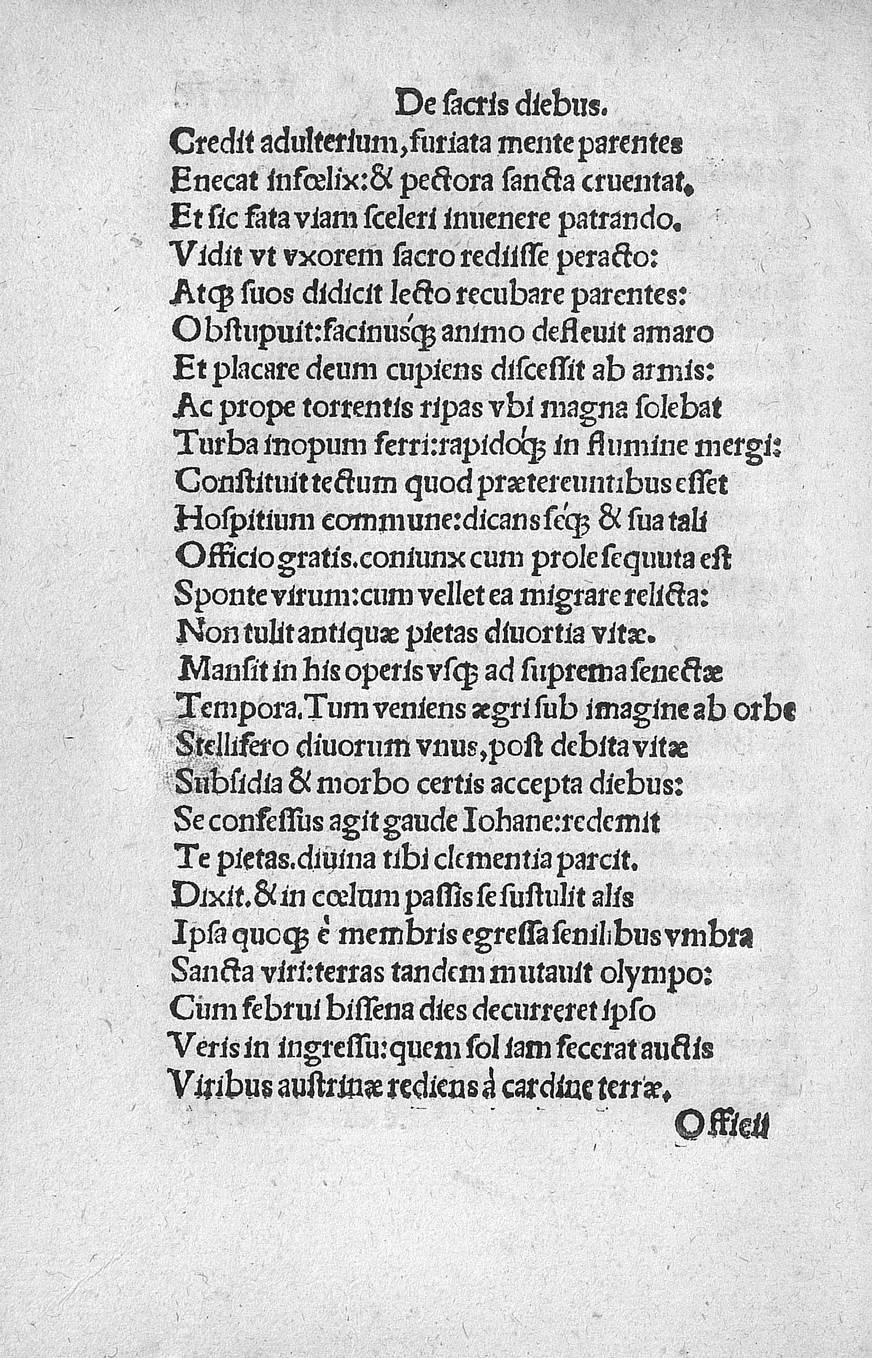 De ſacris diebus.
Credit adulterium, furiata mente parentes
Enecat infœlix: & pectora ſancta cruentat.
Et ſic fata viam ſceleri inuenere patrando.
Vidit vt vxorem ſacro rediiſſe peracto:
Atqꝫ ſuos didicit lecto recubare parentes:
Obſtupuit: facinuśqꝫ animo defleuit amaro
Et placare deum cupiens diſceſſit ab armis:
Ac prope torrentis ripas vbi magna ſolebat
Turba inopum ferri: rapidóqꝫ in flumine mergi:
Conſtituit tectum quod prætereuntibus eſſet
Hoſpitium commune: dicans ſéqꝫ & ſua tali
Officio gratis. coniunx cum prole ſequuta eſt
Sponte virum: cum vellet ea migrare relicta:
Non tulit antiquæ pietas diuortia vitæ.
Manſit in his operis vſqꝫ ad ſuprema ſenectæ
Tempora. Tum veniens ægri ſub imagine ab orbe
Stellifero diuorum vnus, poſt debita vitæ
Subſidia & morbo certis accepta diebus:
Se confeſſus agit gaude Iohane: redemit
Te pietas. diuina tibi clementia parcit.
Dixit. & in cœlum paſſis ſe ſuſtulit alis
Ipſa quoqꝫ è membris egreſſa ſenilibus vmbra
Sancta viri: terras tandem mutauit olympo:
Cùm februi biſſena dies decurreret ipſo
Veris in ingreſſu: quem ſol iam fecerat auctis
Viribus auſtrinæ rediens à cardine terræ.
Officii